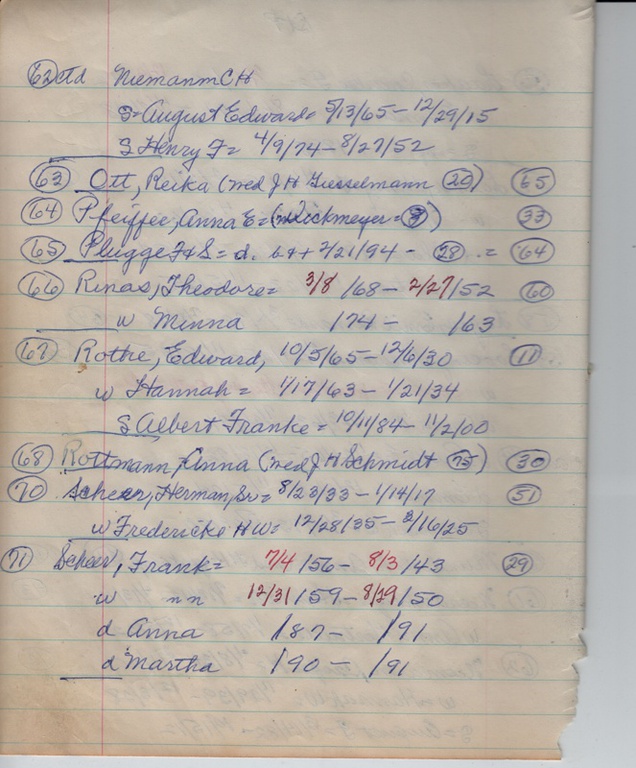 (62) ctd Niemann CH
S=August Edward= 5/13/65 - 12/29/15
S Henry F= 4/9/74 - 8/27/52
(63) Ott, Reika (med J H Giesselmann (20)) (65)
(64) Pfeiffer, Anna E= (Wickmeyer= ) (33)
(65) Plugge F&S= d. 2/21/94 - (28) = (64)
(66) Rinas, Theodore= 3/8/68 - 2/27/52 (60)
w Minna /74 - /63
(67) Rothe, Edward, 10/5/65 - 12/6/30 (11)
w Hannah = 1/17/63 - 1/21/34
S Albert Franke = 10/11/84 - 11/2/00
(68) Rottmann, Anna (med J H Schmidt (75)) (30)
(70) Scheer, Herman, Sr= 8/23/33 - 1/14/17 (51)
w Fredericke H W= 12/28/35 - 2/16/25
(71) Scheer, Frank= 7/4/56 - 8/3/43 (29)
w nn 12/31/59 - 8/29/50
d Anna /87 - /91
d Martha /90 - /91